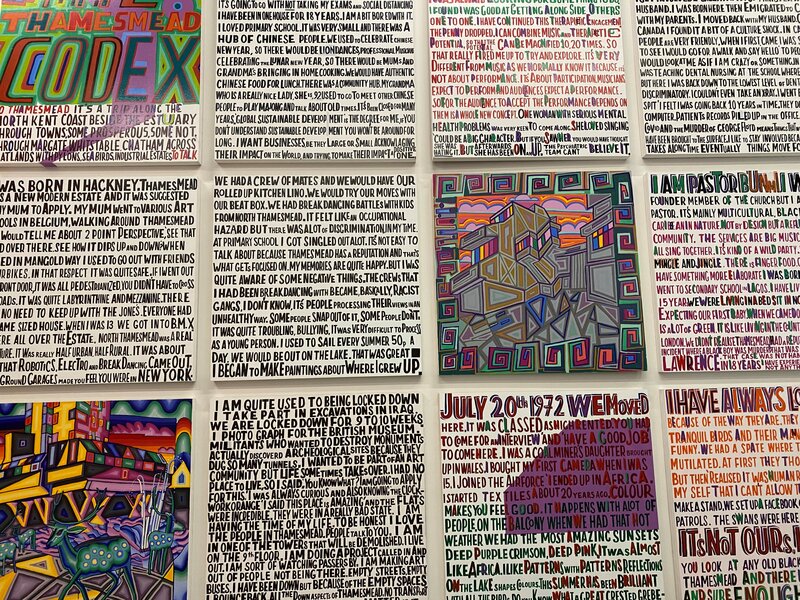 THAMESMEAD
CODEX
TO THAMESMEAD. IT'S A TRIP ALONG THE
NORTH KENT COAST BESIDE THE ESTUARY
THROUGH TOWNS, SOME PROSPEROUS, SOME NOT.
THROUGH MARGATE WHITSTABLE, CHATHAM ACROSS
LANDS WITH PYLONS, SEA BIRDS, INDUSTRIAL ESTATES TO TALK
IT'S GOING TO GO WITH NOT TAKING MY EXAMS AND SOCIAL DISTANCING
I HAVE BEEN IN ONE HOUSE FOR 18 YEARS. I AM A BIT BORED WITH IT.
I LOVED PRIMARY SCHOOL, IT WAS VERY SMALL AND THERE WAS A
HUB OF CHINESE PEOPLE WE USED TO CELEBRATE CHINESE
NEW YEAR, SO THERE WOULD BE LION DANCES, PROFESSIONAL MUSICIANS
CELEBRATING THE LUNAR NEW YEAR, SO THERE WOULD BE MUMS AND
GRANDMAS BRINGING IN HOME COOKING. WE WOULD HAVE AUTHENTIC
CHINESE FOOD FOR LUNCH. THERE WAS A COMMUNITY HUB. MY GRANDMA
WHO IS A REALLY NICE LADY, SHE IS 92, USED TO GO TO MEET OTHER CHINESE
PEOPLE TO PLAY MAHJONG AND TALK ABOUT OLD TIMES. IT'S BEEN CLOSED FOR MANY
YEARS, GLOBAL SUSTAINABLE DEVELOPMENT IS THE DEGREE FOR ME, IF YOU
DON'T UNDERSTAND SUSTAINABLE DEVELOPMENT YOU WON'T BE AROUND FOR
LONG. I WANT BUSINESSES BE THEY LARGE OR SMALL ACKNOWLEDGING
THEIR IMPACT ON THE WORLD, AND TRYING TO MAKE THEIR IMPACT A
FOUND I WAS GOOD AT GETTING ALONG SIDE OTHERS
ONE TO ONE. I HAVE CONTINUED THIS THERAPEUTIC ENGAGEMENT
THE PENNY DROPPED, I CAN COMBINE MUSIC AND THERAPEUTIC
POTENTIAL, SO THAT THE POTENTIAL CAN BE MAGNIFIED 10, 20 TIMES. SO
THAT REALLY FIRED ME UP TO TRY AND EXPLORE. IT'S VERY
DIFFERENT FROM MUSIC AS WE NORMALLY KNOW IT BECAUSE IT IS
NOT ABOUT PERFORMANCE. IT IS ABOUT PARTICIPATION. MUSICIANS
EXPECT TO PERFORM AND AUDIENCES EXPECT A PERFORMANCE.
SO FOR THE AUDIENCE TO ACCEPT THE PERFORMANCE DEPENDS
ON THEM IS A WHOLE NEW CONCEPT. ONE WOMAN WITH SERIOUS MENTAL
HEALTH PROBLEMS WAS VERY KEEN TO COME ALONG. SHE LOVED SINGING
COULD BE A BIG CHARACTER. BIT OF A BAWDY SAILOR. YOU WOULD HAVE THOUGHT
SHE WAS EATING IT. BUT AFTERWARDS SHE HAS BEEN ON..UP.. THE PSYCHIATRIC TEAM CAN'T BELIEVE IT.
HUSBAND. I WAS BORN HERE THEN EMIGRATED TO
WITH MY PARENTS. I MOVED BACK WITH MY HUSBAND.
CANADA I FOUND IT A BIT OF A CULTURE SHOCK. IN
PEOPLE ARE VERY FRIENDLY, WHEN I FIRST CAME
TO SEE I WOULD GO FOR A WALK AND SAY HELLO TO
WOULD LOOK AT ME AS IF I AM CRAZY OR SOMETHING. IN
WAS TEACHING DENTAL NURSING AT THE SCHOOL WHERE
BUT HERE I WAS BACK DOWN TO THE LOWEST LEVEL OF
DISCRIMINATORY. I COULDN'T EVEN TAKE AN XRAY. I WENT
SPIT'I FELT I WAS GOING BACK 10 YEARS IN TIME, THEY
COMPUTER, PATIENT'S RECORDS PILED UP IN THE
GUY AND THE MURDER OF GEORGE FLOYD MEANS THINGS
HAVE BEEN BROUGHT TO THE SURFACE. I LIKE TO STAY INVOLVED
TAKES A LONG TIME EVENTUALLY THINGS MOVE
WAS BORN IN HACKNEY. THAMESMEAD
AS A NEW MODERN ESTATE AND IT WAS SUGGESTED
MY MUM TO APPLY. MY MUM WENT TO VARIOUS ART
SCHOOLS IN BELGIUM, WALKING AROUND THAMESMEAD
WOULD TELL ME ABOUT 2 POINT PERSPECTIVE, SEE THAT
OVER THERE. SEE HOW IT DIPS UP AND DOWN WHEN
LIVED IN MANGOLD WAY I USED TO GO OUT WITH FRIENDS
OUR BIKES. IN THAT RESPECT IT WAS QUITE SAFE. IF I WENT
FRONT DOOR, IT WAS ALL PEDESTRIANIZED, YOU DIDN'T HAVE TO CROSS
ROADS. IT WAS QUITE LABYRINTHINE AND MEZZANINE. THERE
NO NEED TO KEEP UP WITH THE JONES'. EVERYONE HAD
SAME SIZED HOUSE. WHEN I WAS 13 WE GOT INTO B.M.X
WERE ALL OVER THE ESTATE. NORTH THAMESMEAD WAS A REAL
IT WAS REALLY HALF URBAN, HALF RURAL. IT WAS ABOUT
THAT ROBOTICS, ELECTRO AND BREAK DANCING CAME OUT.
UNDERGROUND GARAGES MADE YOU FEEL YOU WERE IN NEW YORK.
WE HAD A CREW OF MATES AND WE WOULD HAVE OUR
ROLLED UP KITCHEN LINO. WE WOULD TRY OUR MOVES WITH
OUR BEAT BOX. WE HAD BREAKDANCING BATTLES WITH KIDS
FROM NORTH THAMESMEAD. IT FELT LIKE AN OCCUPATIONAL
HAZARD BUT THERE WAS A LOT OF DISCRIMINATION IN MY TIME.
AT PRIMARY SCHOOL I GOT SINGLED OUT A LOT. IT'S NOT EASY TO
TALK ABOUT BECAUSE THAMESMEAD HAS A REPUTATION AND THAT'S
WHAT GETS FOCUSED ON. MY MEMORIES ARE QUITE HAPPY. BUT I WAS
QUITE AWARE OF SOME NEGATIVE THINGS. THE CREWS THAT
I HAD BEEN BREAKDANCING WITH BECAME, BASICALLY, RACIST
GANGS, I DON'T KNOW, IT'S PEOPLE PROCESSING THEIR VIEWS IN AN
UNHEALTHY WAY. SOME PEOPLE SNAP OUT OF IT, SOME PEOPLE DON'T.
IT WAS QUITE TROUBLING, BULLYING, IT WAS VERY DIFFICULT TO PROCESS
AS A YOUNG PERSON. I USED TO SAIL EVERY SUMMER 50p A
DAY. WE WOULD BE OUT ON THE LAKE. THAT WAS GREAT
I BEGAN TO MAKE PAINTINGS ABOUT WHERE I GREW UP.
I AM PASTOR BUNMI
FOUNDER MEMBER OF THE CHURCH BUT I AM
PASTOR. IT'S MAINLY MULTICULTURAL, BLACK
CARIBBEAN IN NATURE. NOT BY DESIGN BUT A
COMMUNITY. THE SERVICES ARE BIG MUSIC
ALL SING TOGETHER. IT IS KIND OF A WILD PARTY.
MINGLE AND JINGLE. THERE IS FINGER FOOD.
HAVE SOMETHING MORE ELABORATE. I WAS BORN
WENT TO SECONDARY SCHOOL - LAGOS. I HAVE
15 YEARS WE WERE LIVING IN A BEDSIT IN
EXPECTING OUR FIRST BABY WHEN WE CAME DOWN
IS A LOT OF GREEN. IT IS LIKE LIVING IN THE COUNTRY
LONDON. WE DIDN'T REALISE THAMESMEAD
INCIDENT WHERE A BLACK BOY WAS MURDER THAT WAS
LAWRENCE. THAT CASE WAS NOT
IN 18 YEARS
I AM QUITE USED TO BEING LOCKED DOWN
I TAKE PART IN EXCAVATIONS IN IRAQ.
WE ARE LOCKED DOWN FOR 9 TO 10 WEEKS
I PHOTOGRAPH FOR THE BRITISH MUSEUM.
MILITANTS WHO WANTED TO DESTROY MONUMENTS
ACTUALLY DISCOVERED ARCHEOLOGICAL SITES BECAUSE THEY
DUG SO MANY TUNNELS. I WANTED TO BE PART OF AN ART
COMMUNITY BUT LIFE SOMETIMES TAKES OVER. I HAD NO
PLACE TO LIVE, SO I SAID, YOU KNOW WHAT? I AM GOING TO APPLY
FOR THIS. I WAS ALWAYS CURIOUS AND ALSO KNOWING THE CLOCK-
WORK ORANGE. I SAID THIS PLACE IS AMAZING AND THE FLATS
WERE INCREDIBLE. THEY WERE IN A REALLY BAD STATE. I AM
HAVING THE TIME OF MY LIFE. TO BE HONEST I LOVE
THE PEOPLE IN THAMESMEAD. PEOPLE TALK TO YOU. I AM
IN ONE OF THE TOWERS THAT WILL BE DEMOLISHED. I LIVE
ON THE 9TH FLOOR. I AM DOING A PROJECT CALLED IN AND
OUT. I AM SORT OF WATCHING PASSERS BY. I AM MAKING ART
OUT OF PEOPLE NOT BEING THERE. EMPTY STREETS, EMPTY
BUSES. I HAVE BEEN DOWN BUT BECAUSE OF THE EMPTY SPACES
I BOUNCE BACK. ALL THE DOWN ASPECTS OF THAMESMEAD, NO TRANSPORT
JULY 20th 1972 WE MOVED
HERE. IT WAS CLASSED AS HIGH RENTED. YOU HAD
TO COME FOR AN INTERVIEW AND HAVE A GOOD JOB
TO COME HERE. I WAS A COAL MINER'S DAUGHTER BROUGHT
UP IN WALES. I BOUGHT MY FIRST CAMERA WHEN I WAS
15. I JOINED THE AIRFORCE I ENDED UP IN AFRICA.
I STARTED TEXTILES ABOUT 20 YEARS AGO. COLOUR
MAKES YOU FEEL GOOD. IT HAPPENS WITH A LOT OF
PEOPLE, ON THE BALCONY WHEN WE HAD THAT HOT
WEATHER WE HAD THE MOST AMAZING SUN SETS
DEEP PURPLE CRIMSON, DEEP PINK, IT WAS ALMOST
LIKE AFRICA. I LIKE PATTERNS WITH PATTERNS REFLECTIONS
ON THE LAKE SHAPES COLOURS. THIS SUMMER HAS BEEN BRILLIANT
WITH ALL THE BIRDS. DO YOU KNOW WHAT A GREAT CRESTED GREBE
I HAVE ALWAYS
BECAUSE OF THE WAY THEY ARE. THEY
TRANQUIL BIRDS AND THEIR
FUNNY. WE HAD A SPATE WHERE
MUTILATED. AT FIRST THEY
BUT THEN REALISED IT WAS HUMAN
MY SELF THAT I CAN'T ALLOW
MAKE A STAND, WE SET UP A FACEBOOK
PATROLS. THE SWANS WERE HERE
IT'S NOT OURS,
YOU LOOK AT ANY OLD BLACK
THAMESMEAD AND THERE
AND SURE ENOUGH